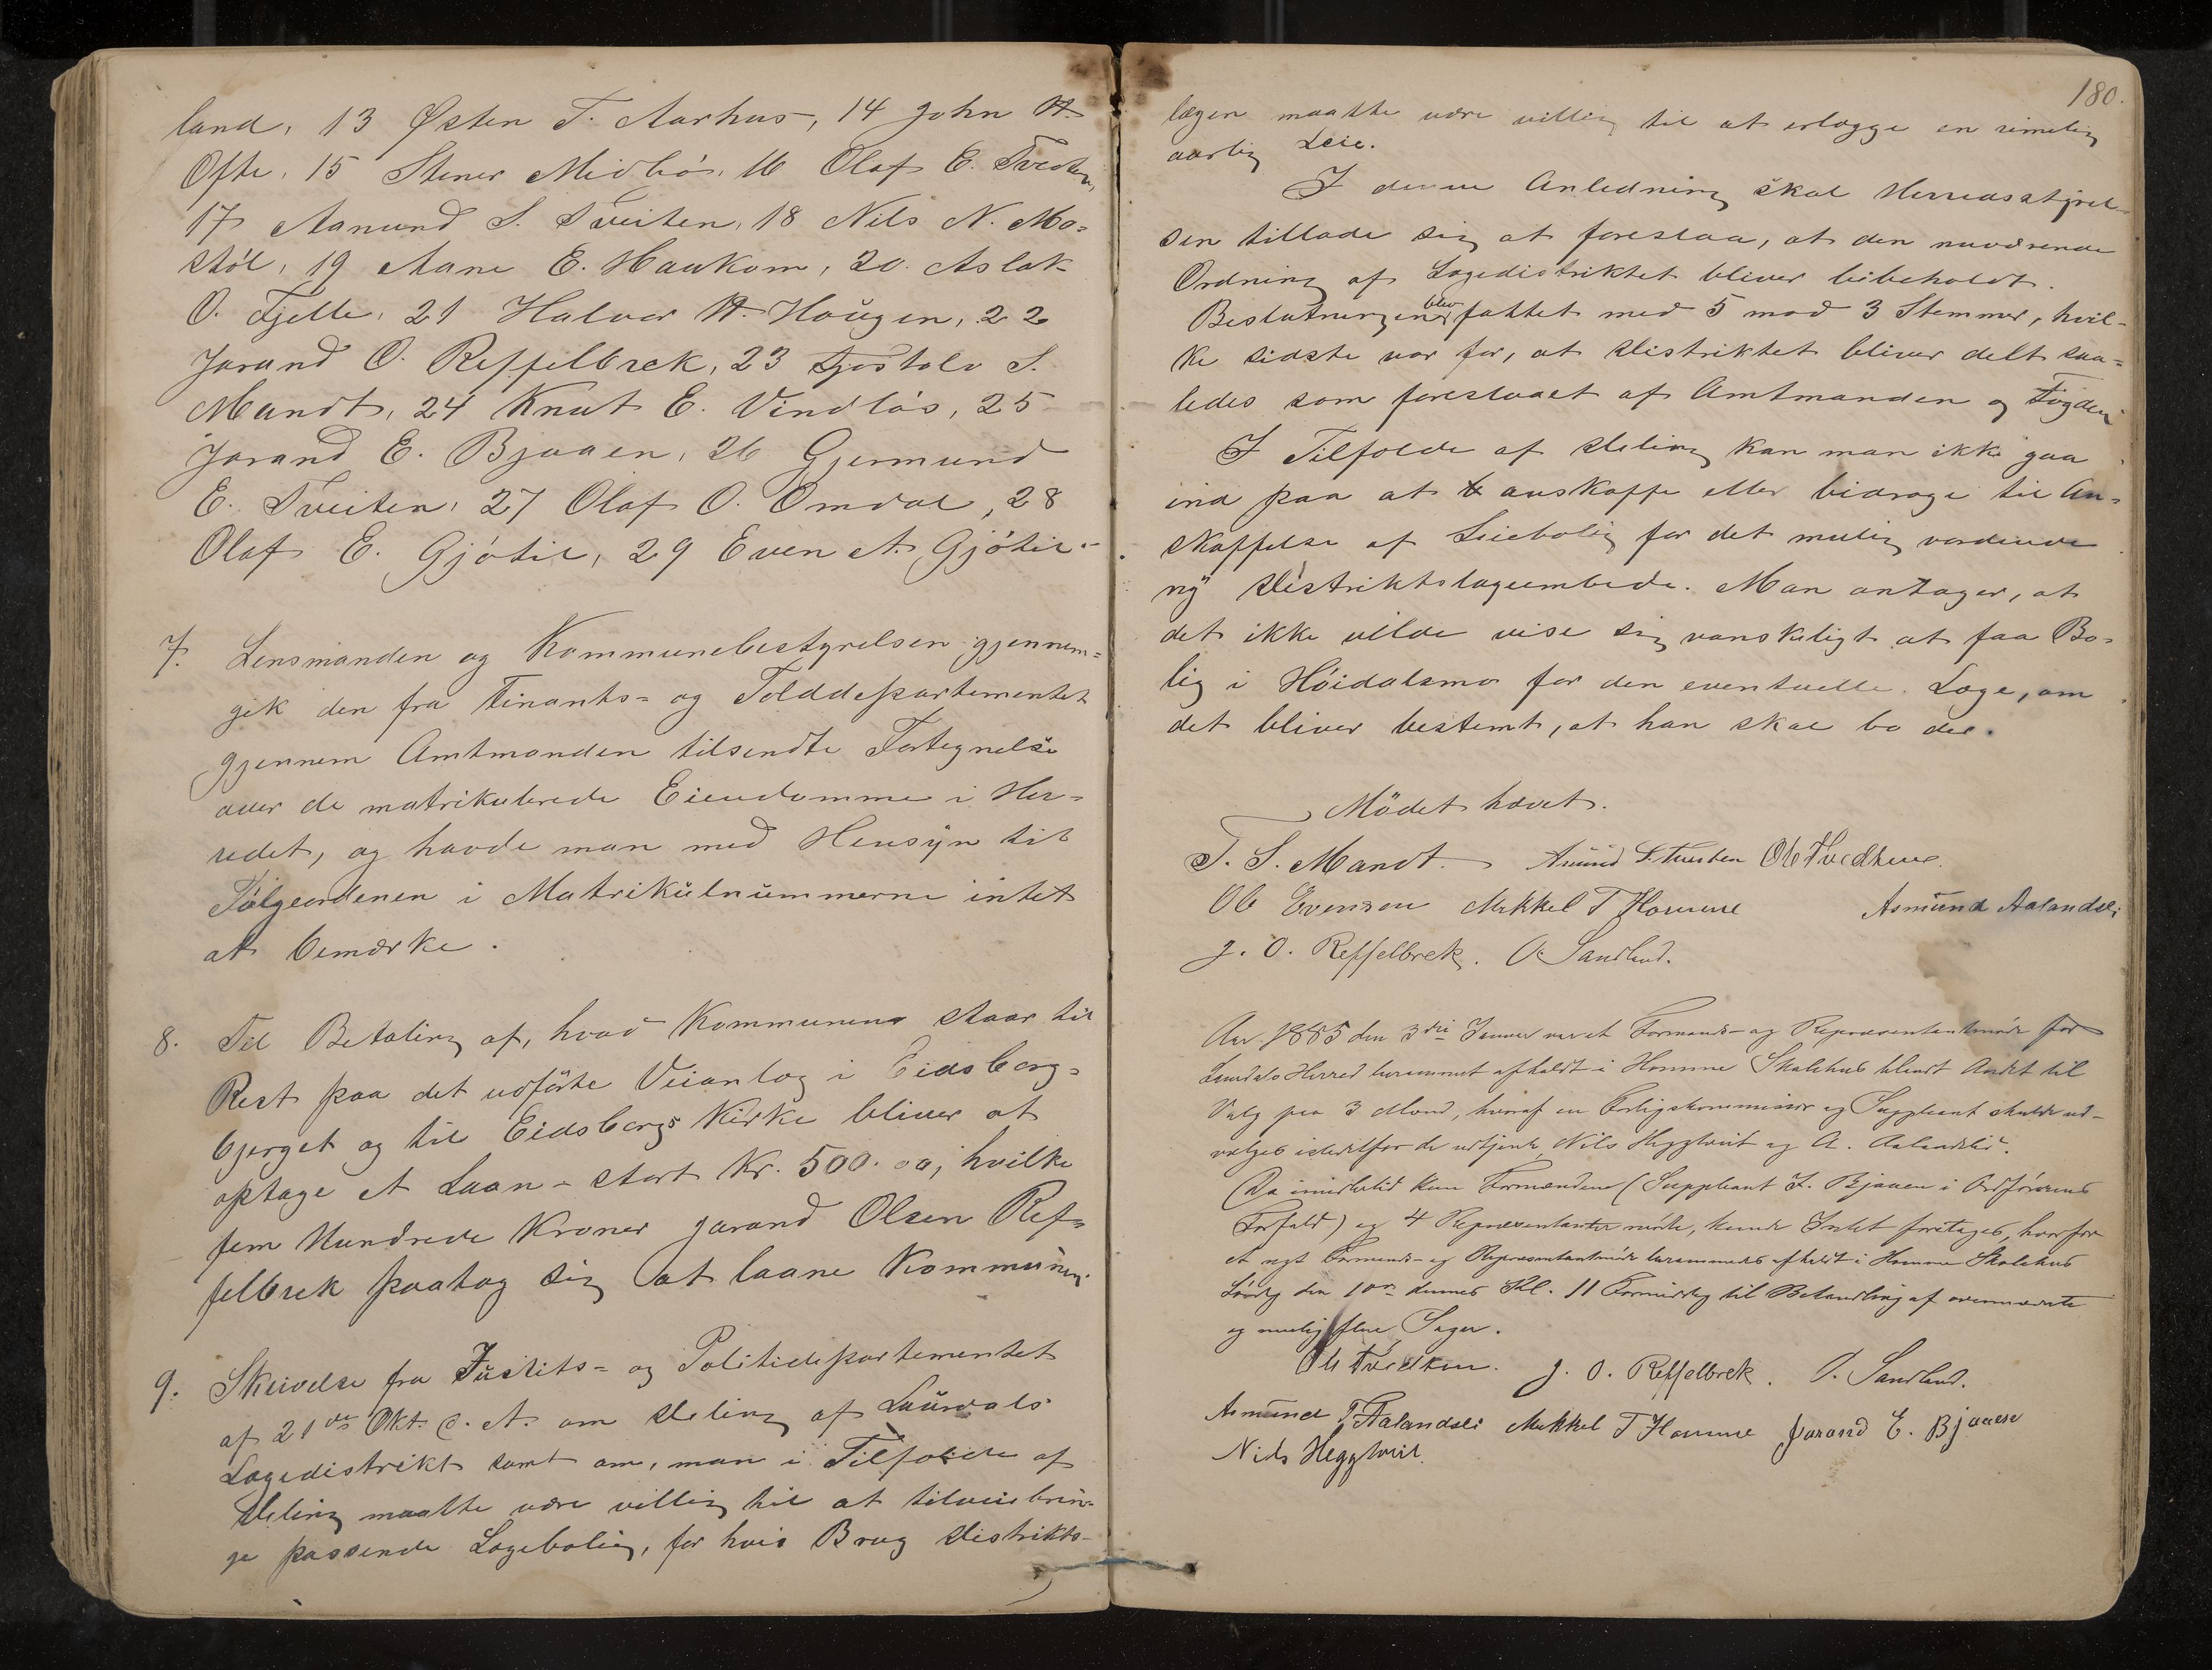 land, 13 Østen T. Aarhus, 14 John A.
Ofte, 15 Stener Midbö, 16 Olaf E. Tveiten,
17 Aamund S. Tveiten, 18 Nils N. Mo=
støl, 19 Aane E. Haukom, 20. Aslak
O. Fjelle, 21 Halvor A. Haugen, 22
Jarand O. Reffelbrek, 23 Tjostolv S.
Mandt, 24 Knut E. Vindlös, 25
Jarand E. Bjaaen, 26 Gjermund
E. Tveiten, 27 Olaf O. Omdal, 28
Olaf E. Gjötil, 29 Even A. Gjötil.
7. Lensmanden og Kommunebestyrelsen gjennem=
gik den fra Finants= og Tolddepartementet
gjennem Amtmanden tilsendte Fortegnelse
over de matrikulerede Eiendomme i Her=
redet, og havde man med Hensyn til
Følgeordenen i Matrikulnummerne intet
at bemærke.
8. Til Betaling af, hvad Kommunen staar til
Rest paa det udförte Veianlæg i Eidsborg=
bjerget og til Eidsborgs Kirke bliver at
optage et Laan - stort Kr. 500.00, hvilke
fem Hundrede Kroner Jarand Olsen Ref=
felbrek paatog sig at laane Kommunen.
9. Skrivelse fra Justits= og Politidepartementet
af 21de Okt. d. A. om Deling af Laurdals
Lægedistrikt samt om, man i Tilfælde af
Deling maatte være villig til at tilveiebrin=
ge passende Lægebolig, for hvis Brug Distrikts-
180.
lægen maatte være villig til at erlægge en rimelig
aarlig Leie.
I denne Anledning skal Herredsstyrel=
sen tillade sig at foreslaa, at den nuværende
Ordning af Lægedistriktet bliver beibeholdt.
Beslutningen blev fattet med 5 mod 3 Stemmer, hvil-
ke sidste var for, at Distriktet bliver delt saa=
ledes som foreslaaet af Amtmanden og Fogden
I Tilfælde af Deling kan man ikke gaa
ind paa at anskaffe eller bidrage til An=
skaffelse af Leiebolig for det mulig vordende
ny Distriktslægeembede. Man antager, at
det ikke vilde vise sig vanskeligt at faa Bo=
lig i Höidalsmo for den eventuelle Læge, om
det bliver bestemt, at han skal bo der.
Mödet hævet.
T. S. Mandt. Amund S. Tveiten Ole Tvedtene.
Ole Evensen Mikkel T Homme Asmund Aalandsli
J. O. Reffelbrek. O. Sandland.
Aar 1885 den 3die Januar var et Formands- og Repræsentantmöde for
Laurdals Herred berammet afholdt i Homme Skolehus blandt Andet til
Valg paa 3 Mænd, hvoraf en Forligskommissær og Suppleant skulde ud-
vælges istedetfor de udtjente, Nils Heggtveit og A. Aalandslid.
Da imidlertid kun Formændene (Suppleant J. Bjaaen i Ordförerens
Forfald) og 4 Repræsentanter mödte, kunde Intet foretages, hvorfor
et nyt Formands- og Repræsentantmöde berammedes afholdt i Homme Skolehus
Lördag den 10de dennes Kl. 11 Formiddag til Behandling af ovennævnte
og mulig flere Sager.
Ole Tvedten. J. O. Reffelbrek. O. Sandland.
Asmund T Aalandsli Mikkel T Homme Jarand E. Bjaaen
Nids Heggtveit.